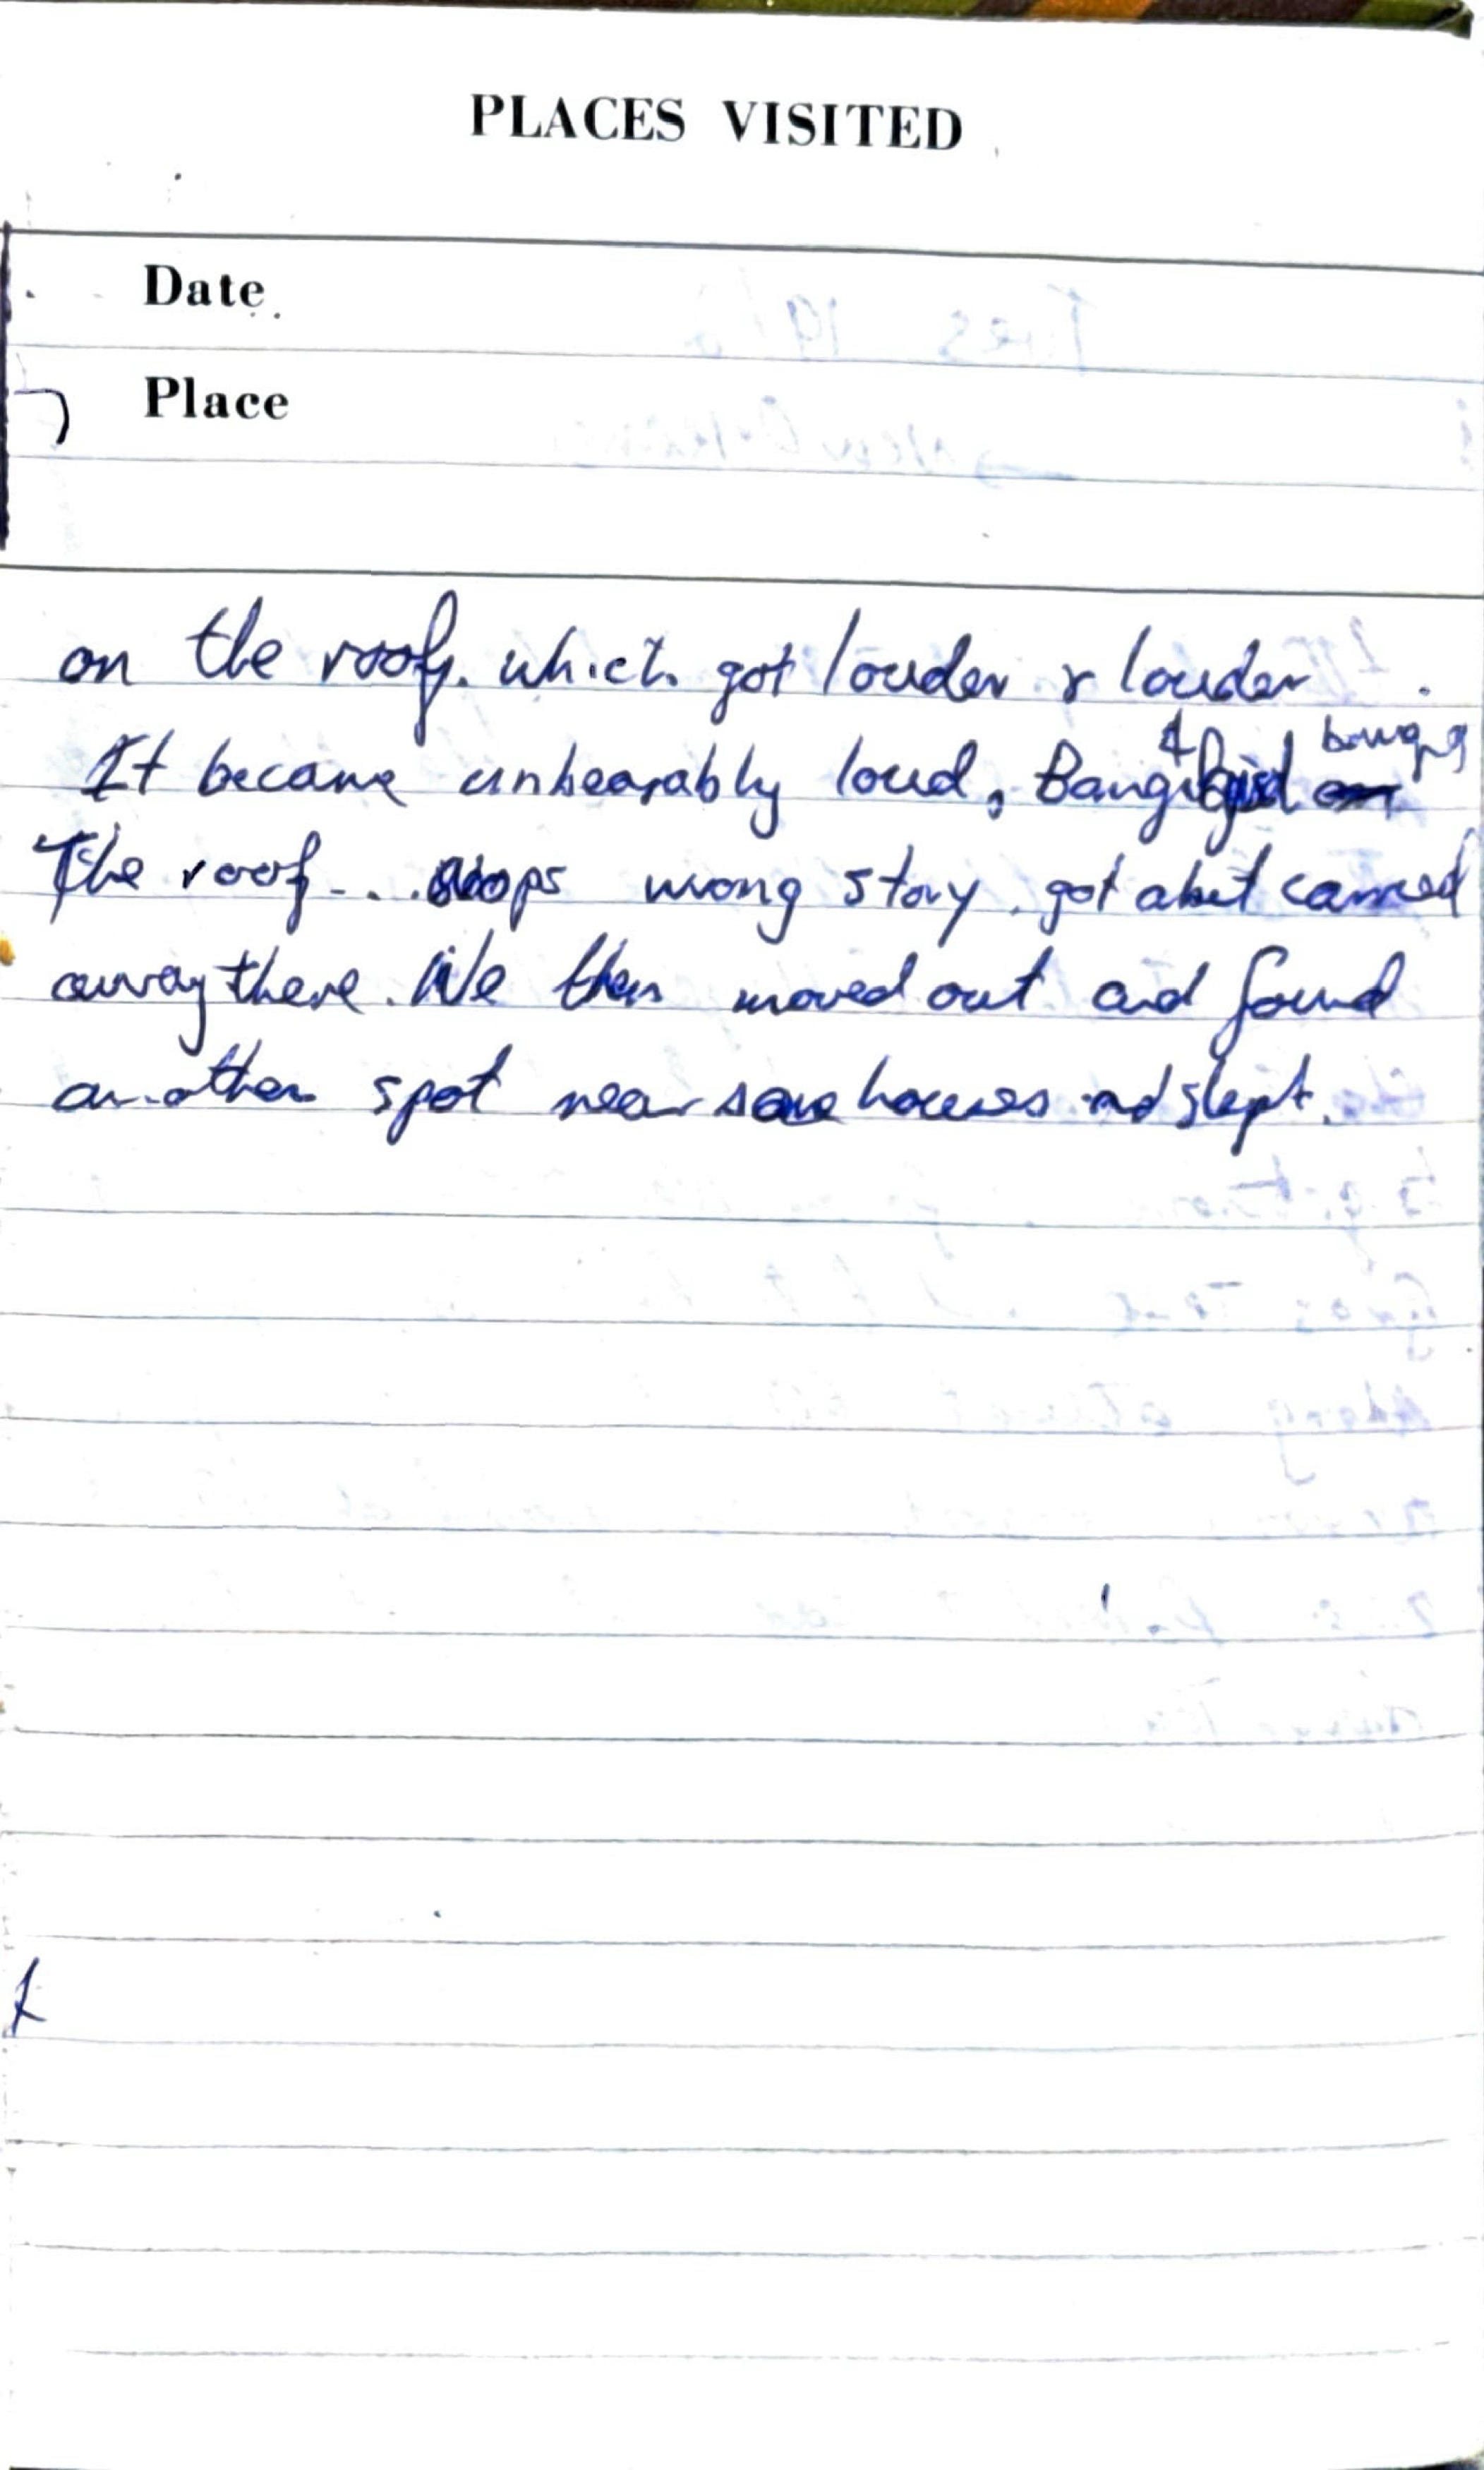 PLACES VISITED
Date
Place
on the roof. which got louder & louder.
It became unbearably loud, Bang & bang
The roof... oops wrong story. got abit carried
away there. We then moved out and found
another spot near some houses and slept.